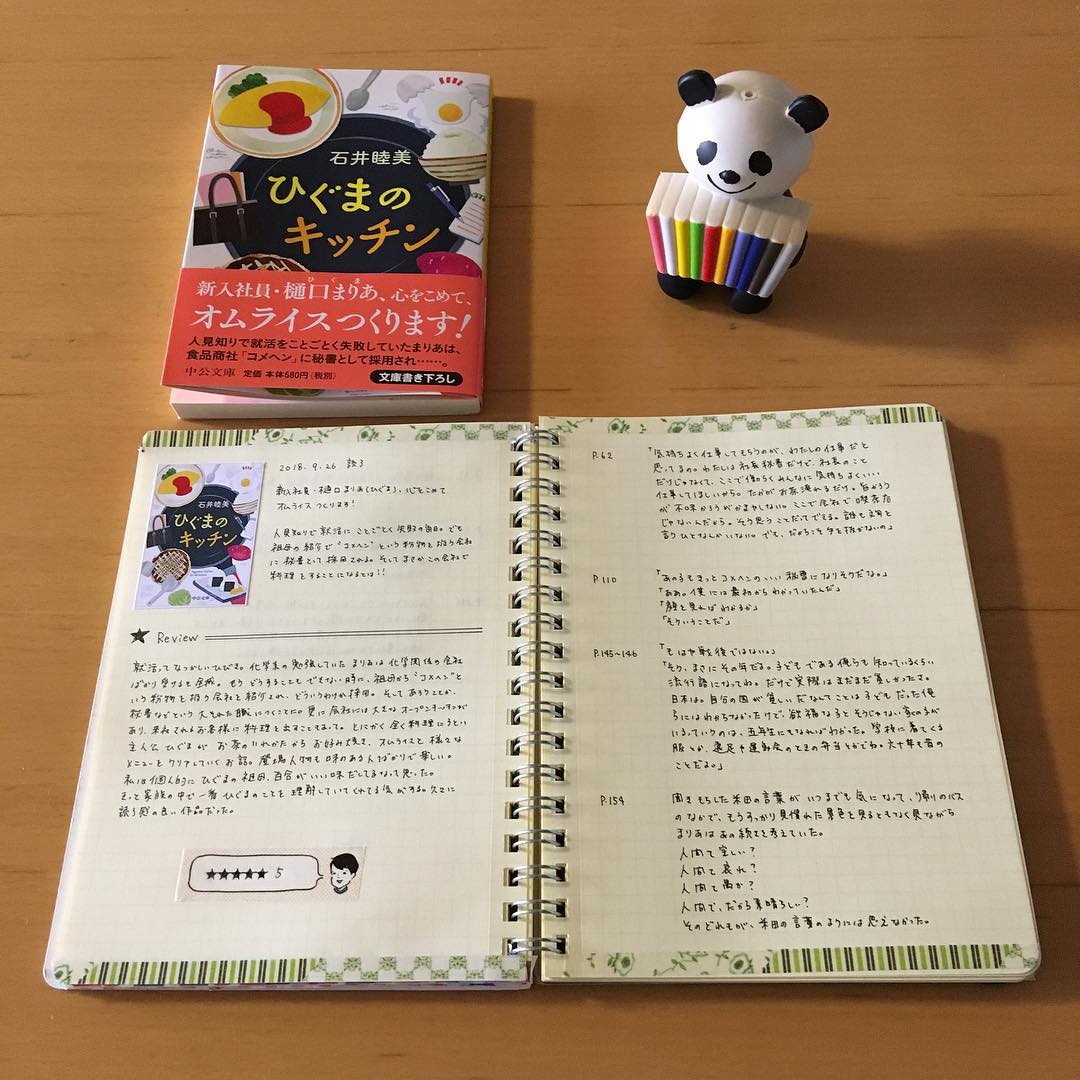 石井睦美
ひぐまの
キッチン
新入社員・樋口まりあ、心をこめて、
ひぐま
オムライスつくります!
人見知りで就活をことごとく失敗していたまりあは、
食品商社「コメヘン」に秘書として採用され……。
中公文庫 定価 本体680円(税別) 文庫書き下ろし
石井睦美
ひぐまの
キッチン
中公文庫
2018.9.26 読了
新入社員・樋口まりあ(ひぐま)、心をこめて
オムライス つくります!
人見知りで就活に ことごとく失敗の毎日。でも
祖母の紹介で"コメヘン"という粉物を扱う会社
に秘書として採用される。そしてまさかこの会社で
料理をすることになるとは!!
★ Review
就活ってなつかしいひびき。化学系の勉強していた まりあは 化学関係の会社
ばかり受けても全滅。もう どうすることも できない時に、祖母から"コメヘン"と
いう粉物を扱う会社を紹介され、どういうわけか採用。そして ありうことか、
秘書などという大それた職につくことに。更に会社には大きな オープンキッチンが
あり、来社されるお客様に料理を出すこともあって。とにかく全く料理にうとい
主人公 ひぐまが お茶の入れかたから お好み焼き、オムライスと 様々な
メニューを クリアしていく お話。登場人物も味のある人ばかりで楽しい。
私は個人的に ひぐまの祖母、百合がいい味だしてるなって思った。
きっと家族の中で一番 ひぐまのことを 理解していてくれてる気がする。久々に
読う感の良い 作品だった。
★★★★★ 5
P.62 「気持ちよく仕事してもらうのが、わたしの仕事だと
思ってるの。わたしは社長秘書だけど、社長のこと
だけじゃなくて、ここで働らくみんなに気持ちよくいい
仕事してほしいから。たかがお茶淹れるだけ。旨かろう
が不味かろうがかまやしない。ここで会社で喫茶店
じゃないんだから。そう思うことだってできる。誰も文句を
言うひとなんかいない。でも、だからこそ手を抜かないの」
P.110 「あの子もきっとコメヘンのいい秘書になりそうだな。」
「ああ。僕には最初からわかっていたんだ」
「顔を見ればわかるか」
「そういうことだ」
P.145~146 「もはや戦後ではない。」
「そう、まさにその年だよ。子どもである俺らも知っているくらい
流行語になってね。だけど実際はまだまだ貧しかったさ。
日本は。自分の国が貧しいだなんてことは子どもだった俺
らにはわからなかったけど、裕福な子とそうじゃない家の子が
いるっていうのは、五年生にもなればわかった。学校に着てくる
服とか、遠足や運動会のときの弁当とかでね。六十年も昔の
ことだよ。」
P.154 聞きもらした米田の言葉が いつまでも気になって、帰りのバス
のなかで、もうすっかり見慣れた景色を見るともなく見ながら
まりあはあの続きを考えていた。
人間て空しい?
人間て哀れ?
人間て愚か?
人間て、だから素晴らしい?
そのどれもが、米田の言葉のようには思えなかった。